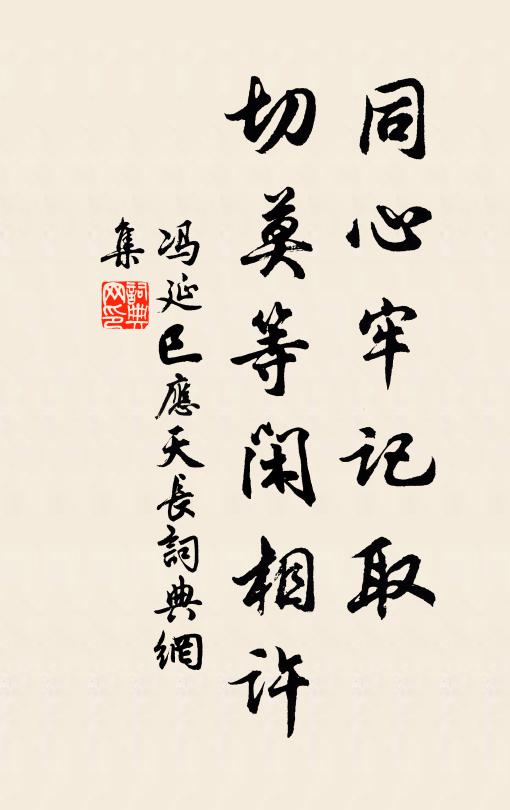 同心牢记取
切莫等闲相许
冯延巳應天長詞典網
集
詞典
网印